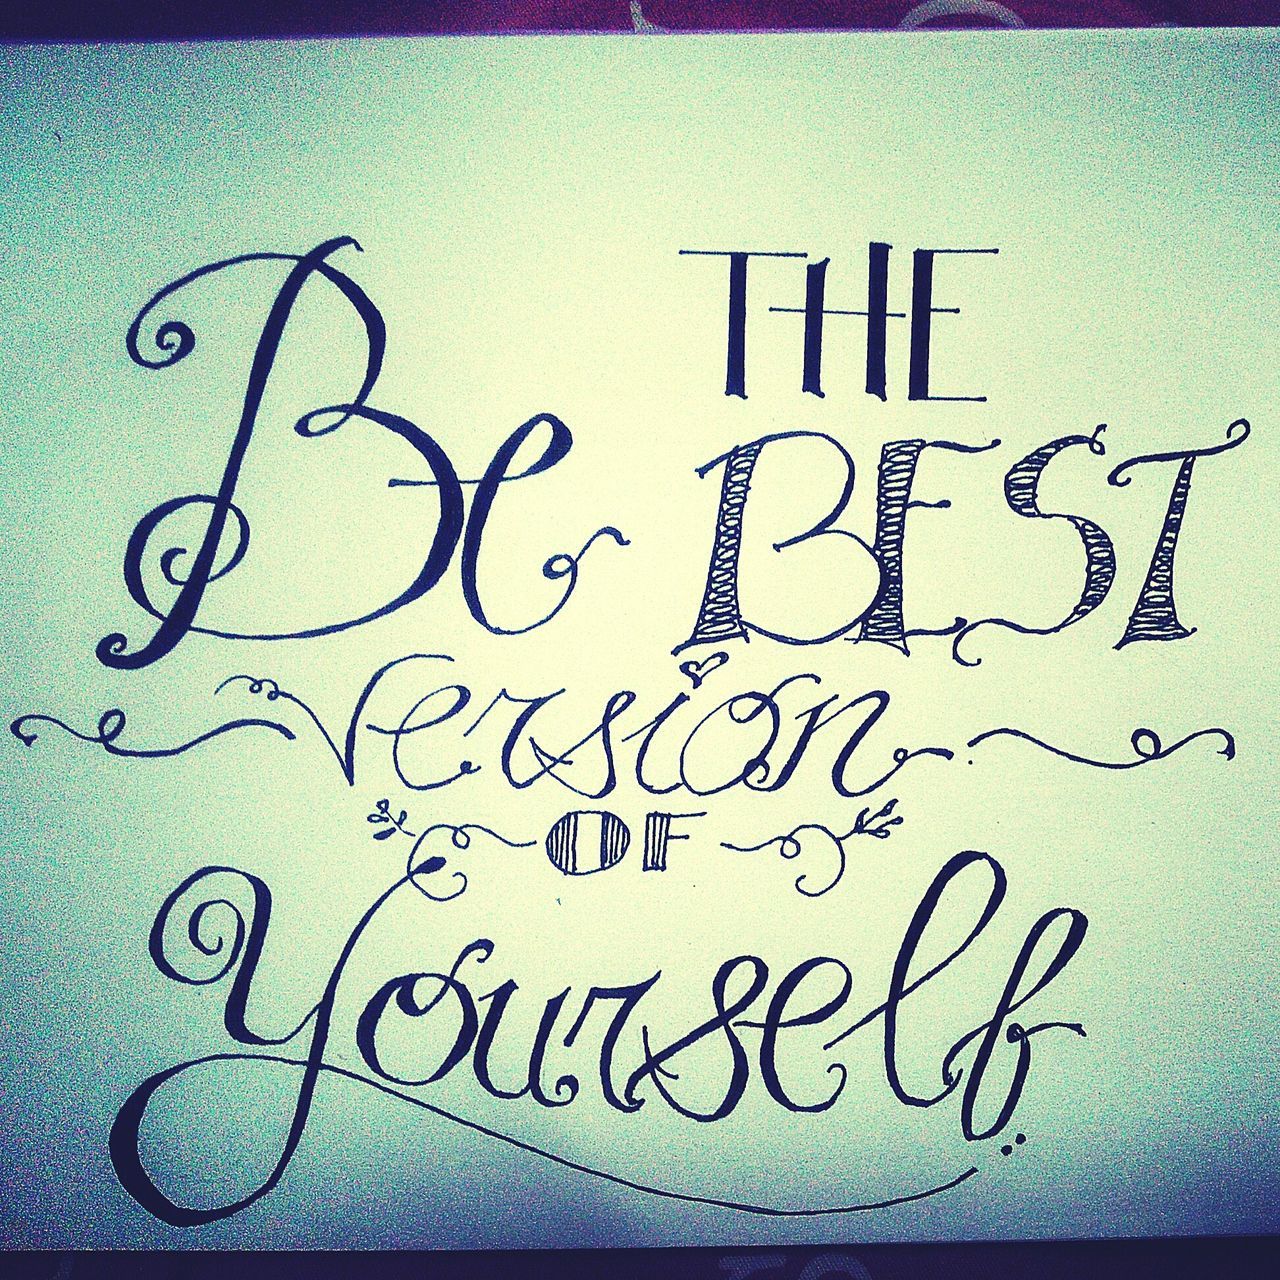 Be THE
BEST
version
OF
yourself